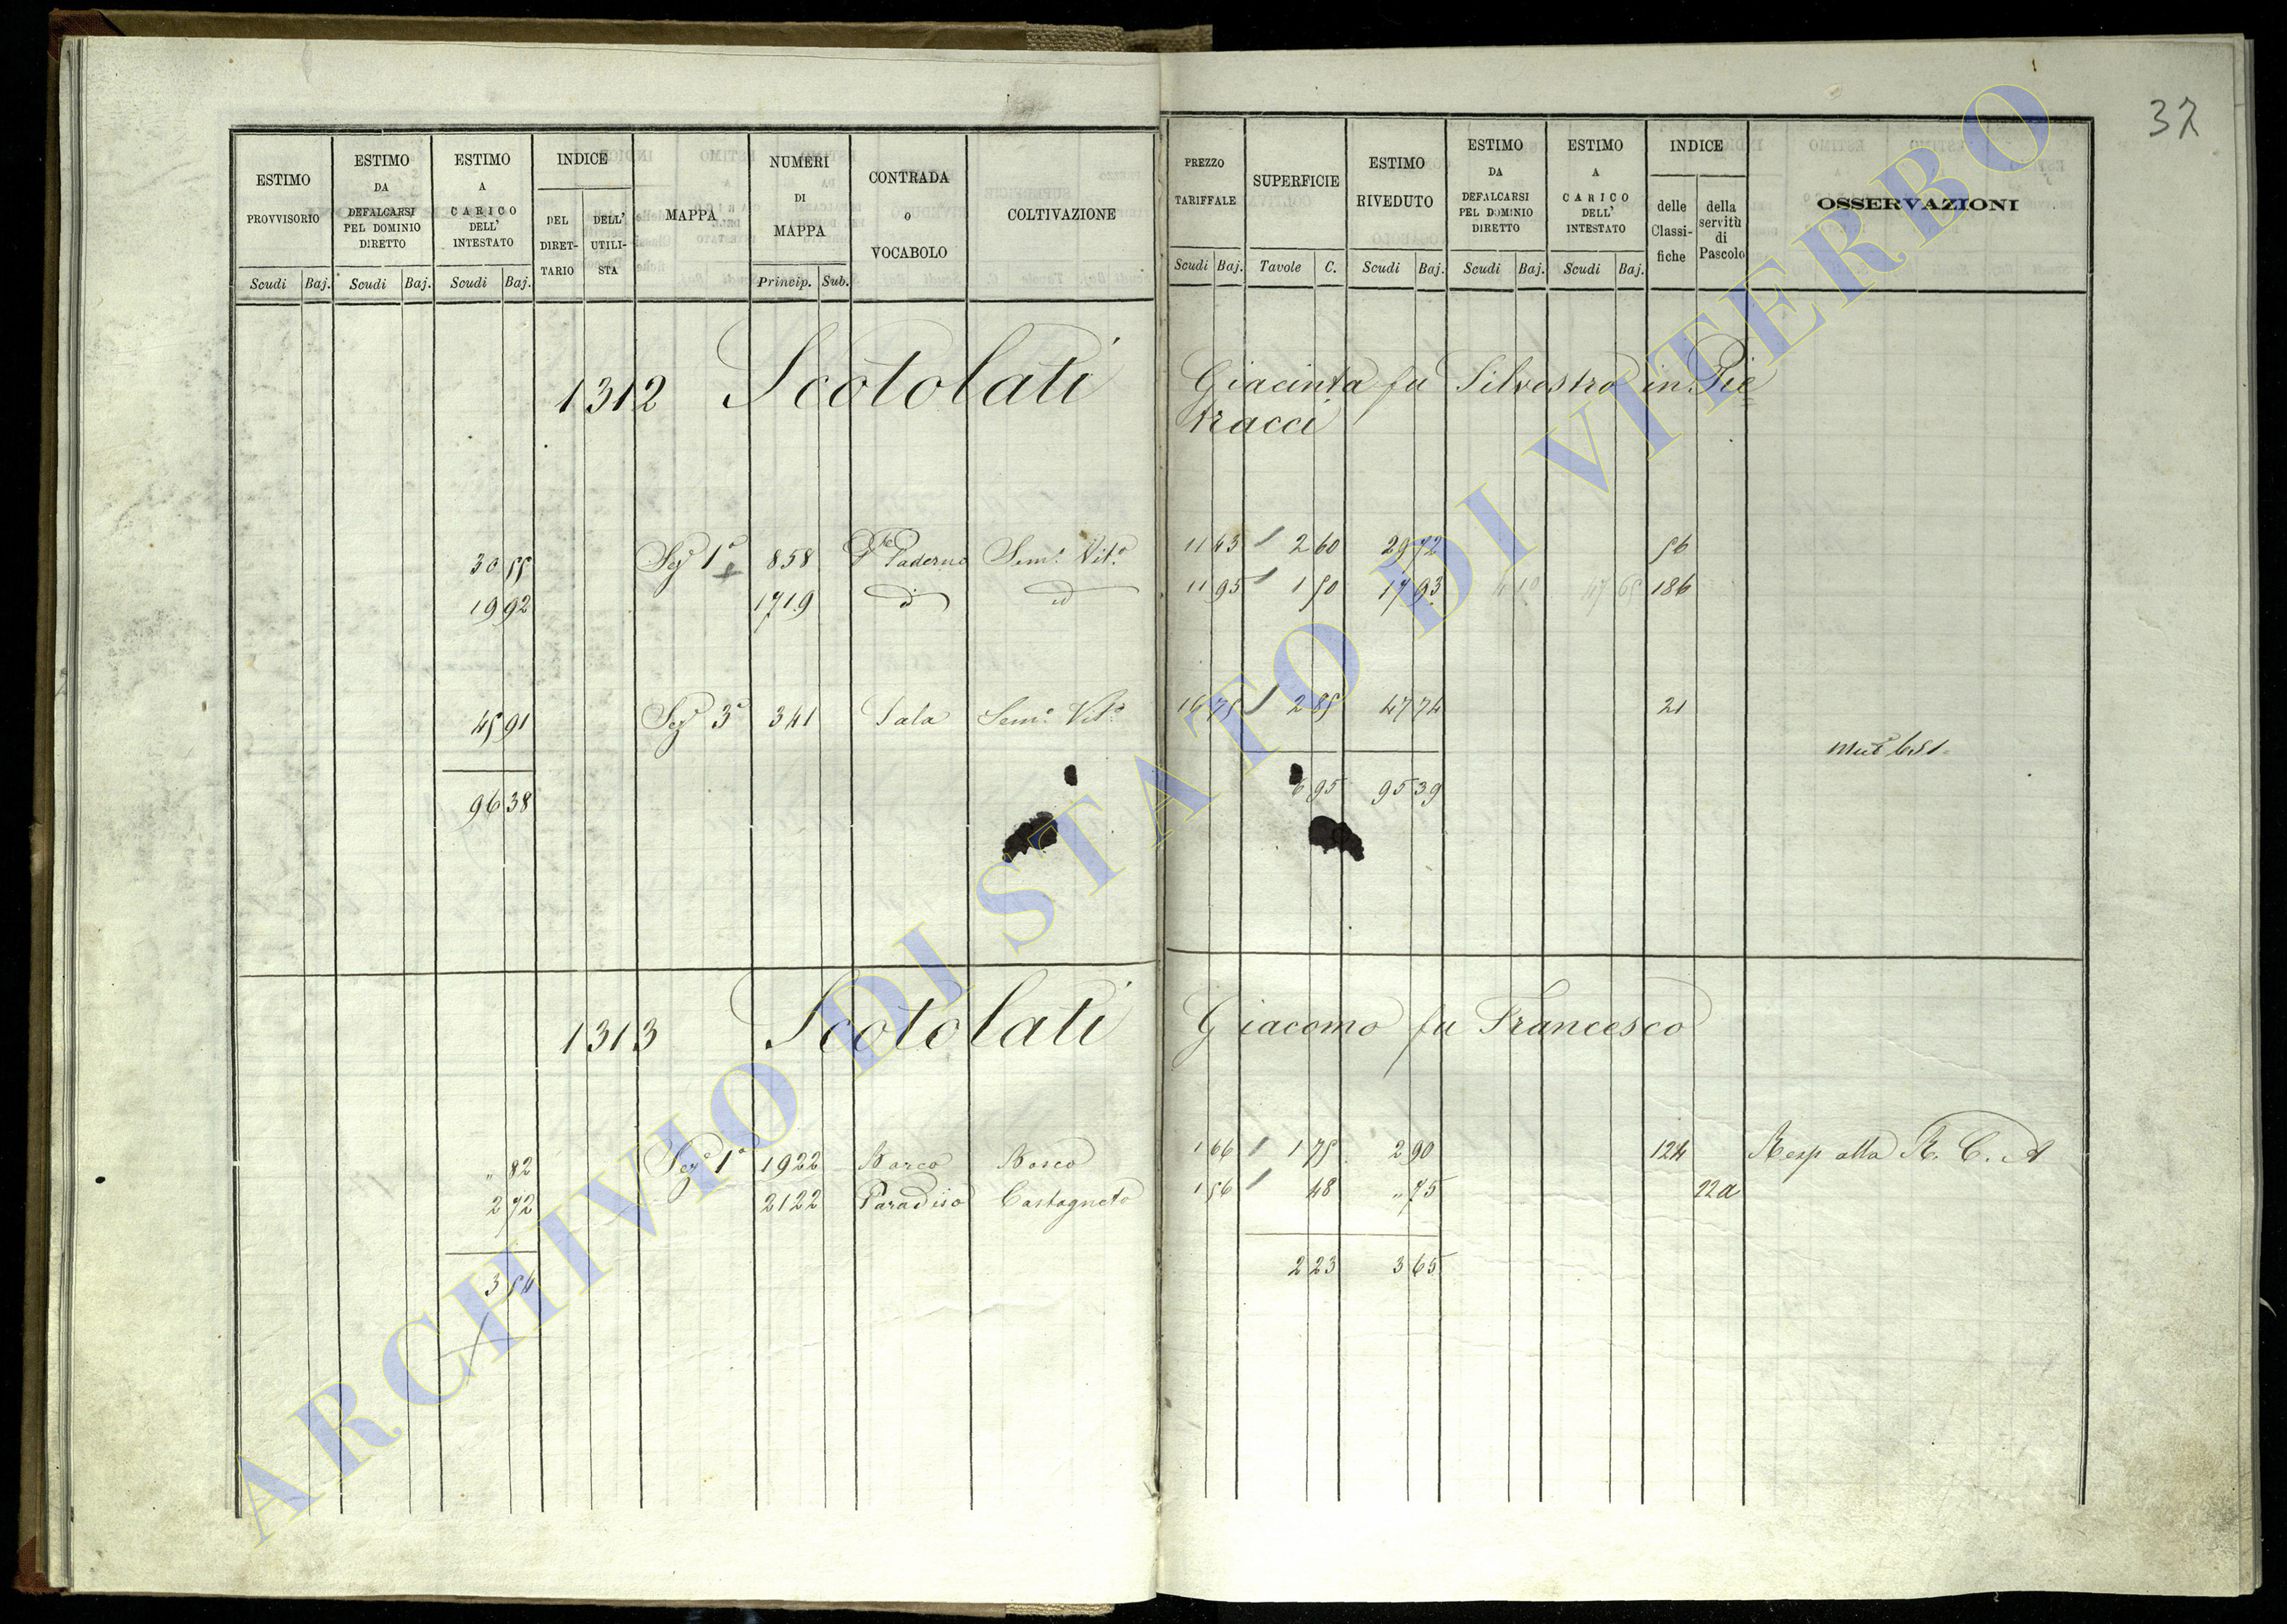 37
ESTIMO PROVVISORIO
ESTIMO DA DEFALCARSI PEL DOMINIO DIRETTO
ESTIMO A CARICO DELL' INTESTATO
INDICE
DEL DIRETTARIO
DELL' UTILISTA
MAPPA
NUMERI DI MAPPA
CONTRADA o VOCABOLO
COLTIVAZIONE
PREZZO TARIFFALE
SUPERFICIE
ESTIMO RIVEDUTO
ESTIMO DA DEFALCARSI PEL DOMINIO DIRETTO
ESTIMO A CARICO DELL' INTESTATO
INDICE
delle Classifiche
della servitù di Pascolo
OSSERVAZIONI
Scudi Baj. Scudi Baj. Scudi Baj. Princip. Sub. Scudi Baj. Tavole C. Scudi Baj. Scudi Baj. Scudi Baj.
1312 Scotolati Giacinta fu Silvestro in Pie
tracci
30 55 Sez 1a 858 Paderno Sem.o Vit.o 11 43 2 60 29 72 56
19 92 1719 d id 11 95 1 50 17 93 4 10 47 65 186
45 91 Sez 3a 341 Sala Sem.o Vit.o 16 75 2 85 47 74 21
96 38 6 95 95 39
1313 Scotolati Giacomo fu Francesco
" 82 Sez 1a 1922 Barco Bosco 1 66 1 75 2 90 124 Resp alla R. C. A
2 72 2122 Paradiso Castagneto 1 56 48 " 75 22a
3 54 2 23 3 65
ARCHIVIO DI STATO DI VITERBO